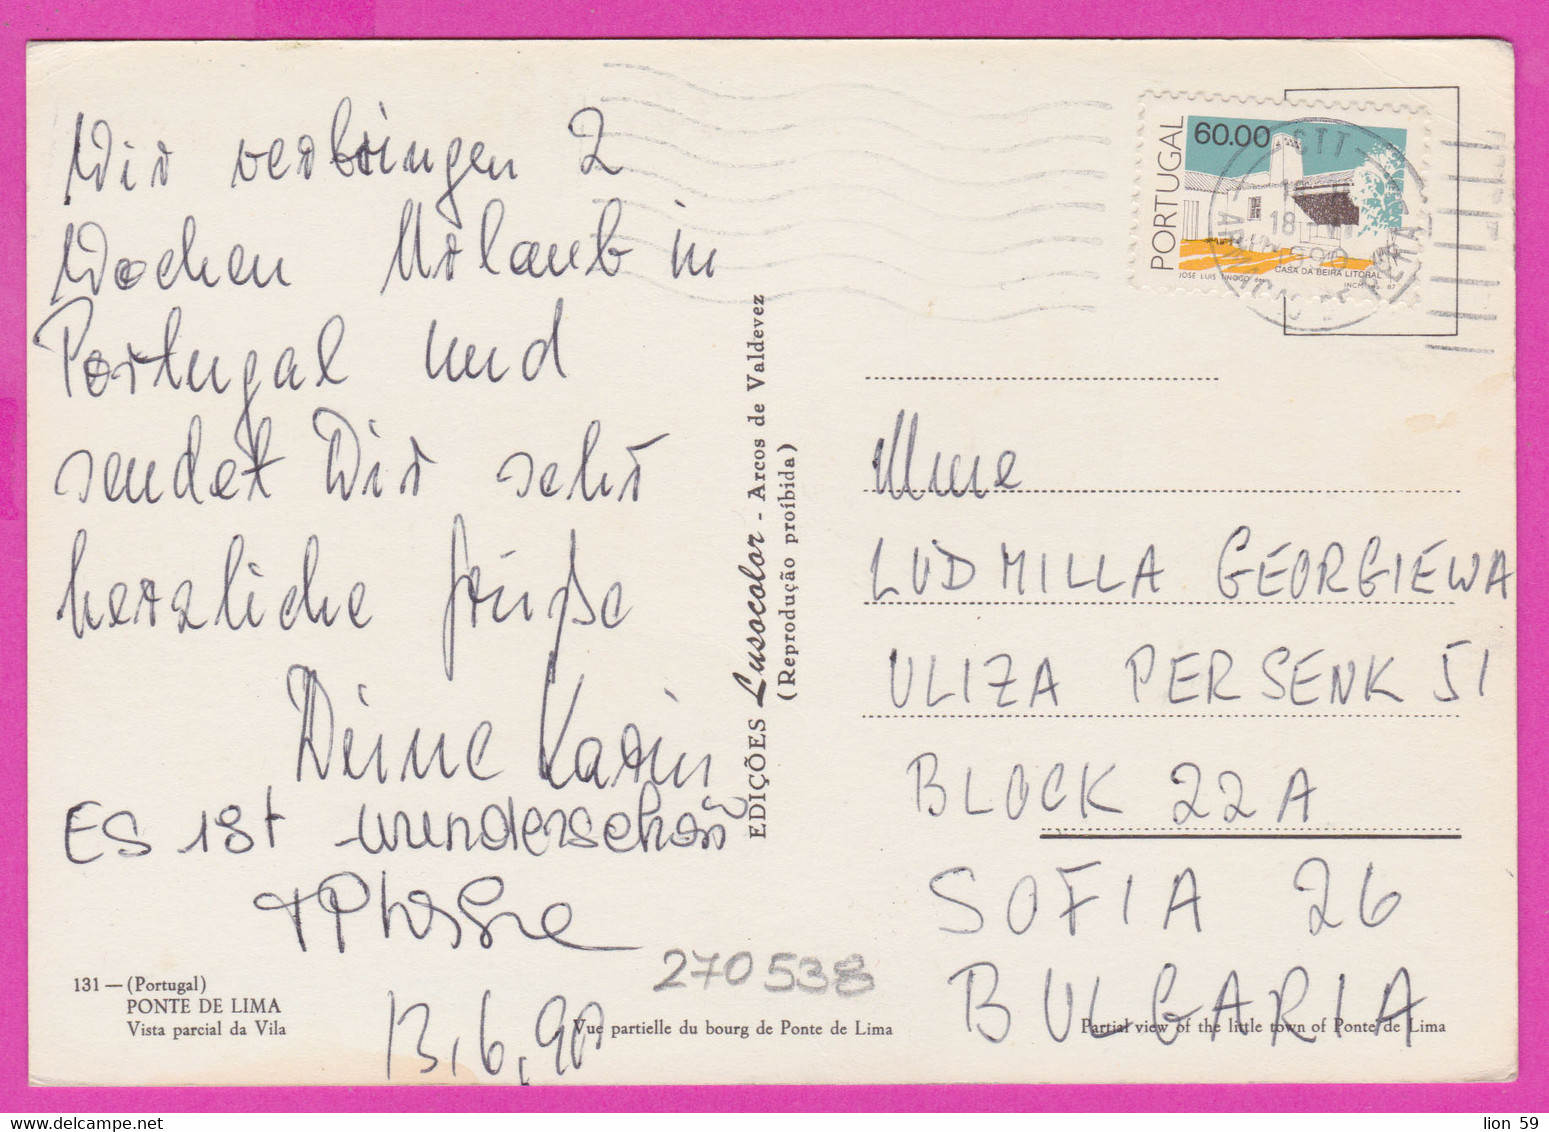 Wir verbringen 2
Wochen Urlaub in
Portugal und
sendet Dir sehr
herzliche Grüße
Deine Karin
ES ist wunderschön
13.6.90
131 — (Portugal)
PONTE DE LIMA
Vista parcial da Vila
Vue partielle du bourg de Ponte de Lima
Partial view of the little town of Ponte de Lima
270538
EDIÇÕES Lusocolor - Arcos de Valdevez
(Reprodução proibida)
PORTUGAL
60.00
CASA DA BEIRA LITORAL
JOSÉ LUÍS TINOCO
INCM 87
CTT
18
1990
Mme
LUDMILLA GEORGIEWA
ULIZA PERSENK 51
BLOCK 22A
SOFIA 26
BULGARIA
lion 59